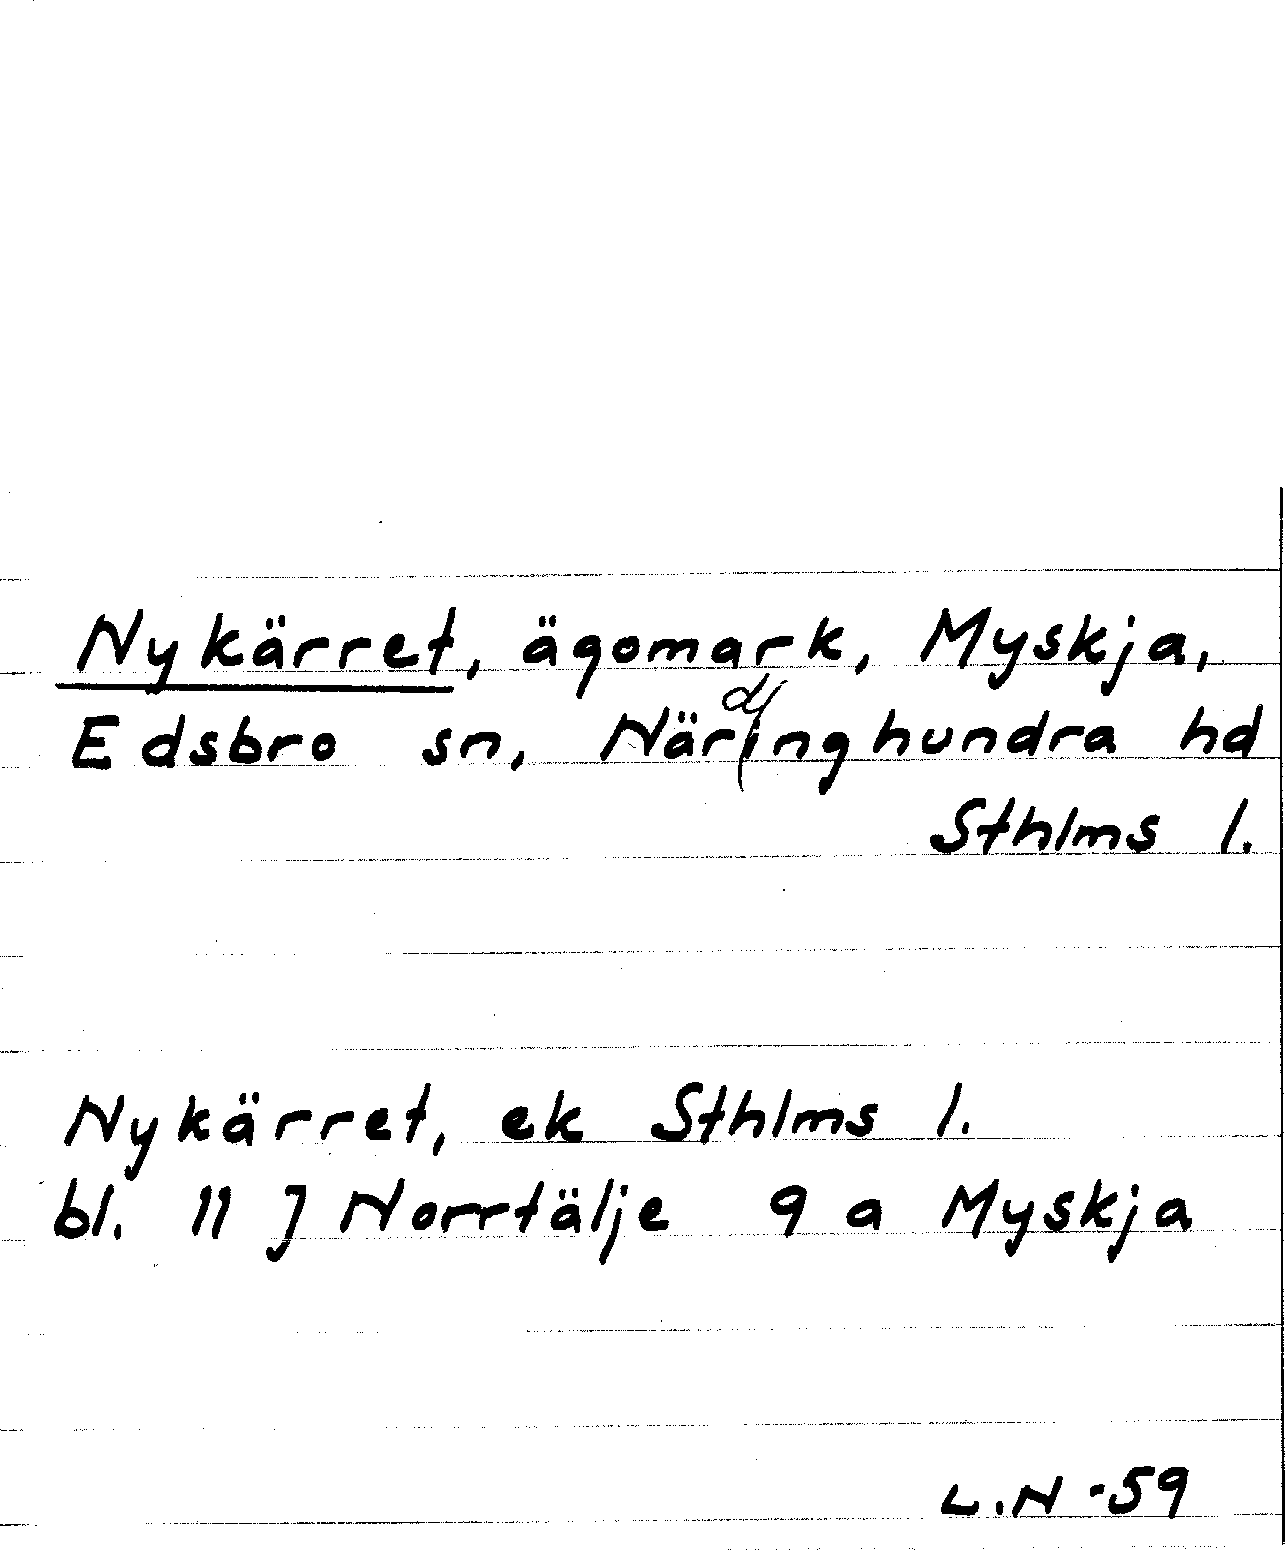 Nykärret, ägomark, Myskja,
Edsbro sn, Närdinghundra hd
Sthlms l.
Nykärret, ek Sthlms l.
bl. 11 J Norrtälje 9 a Myskja
L.N -59